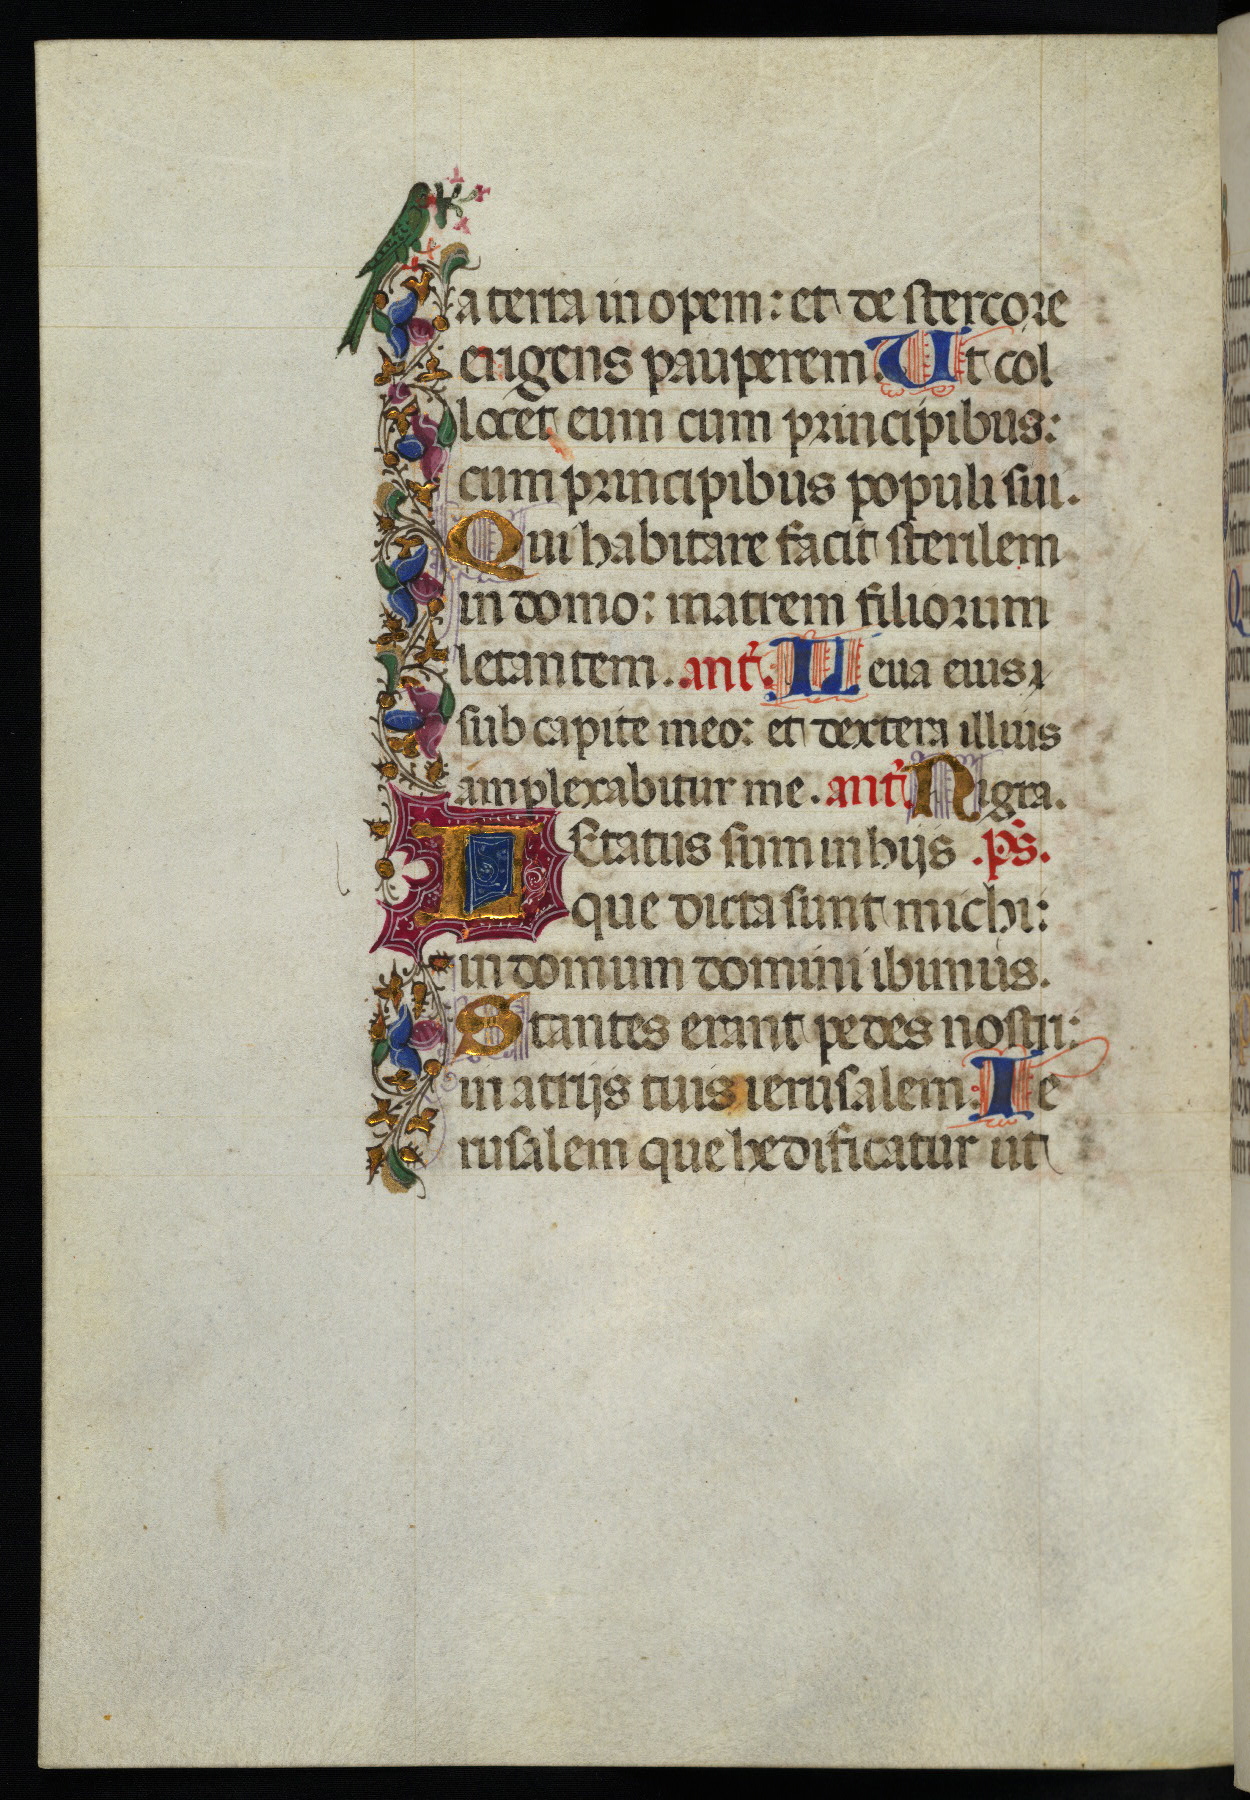 a terra inopem: et de stercore
erigens pauperem. Ut col
locet eum cum principibus:
cum principibus populi sui.
Qui habitare facit sterilem
in domo: matrem filiorum
letantem. ant̃. Leua eius
sub capite meo: et dextera illius
amplexabitur me. ant̃. Nigra.
LEtatus sum in hijs .p̃s.
que dicta sunt michi:
in domum domini ibimus.
Stantes erant pedes nostri:
in atrijs tuis ierusalem. Ie
rusalem que hedificatur ut